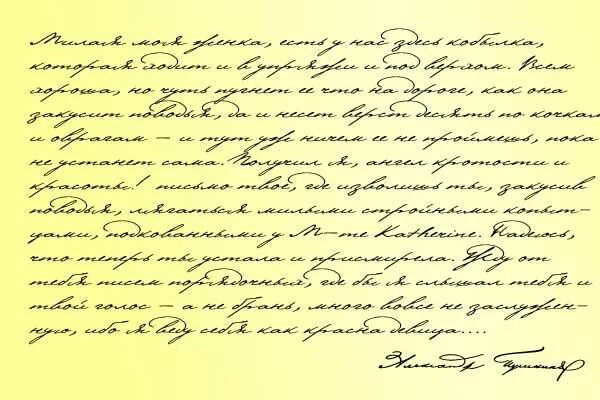 Милая моя женка, есть у нас здесь кобылка,
которая ходит и в упряжи и под верхом. Всем
хороша, но чуть пугнет ее что на дороге, как она
закусит поводья, да и несет верст десять по кочкам
и оврагам — и тут уж ничем ее не проймешь, пока
не устанет сама. Получил я, ангел кротости и
красоты! письмо твое, где изволишь ты, закусив
поводья, лягаться милыми стройными копыт-
цами, подкованными у M-me Katherine. Надеюсь,
что теперь ты устала и присмирела. Жду от
тебя писем порядочных, где бы я слышал тебя и
твой голос — а не брань, мною вовсе не заслужен-
ную, ибо я веду себя как красна девица....
Александр Пушкин